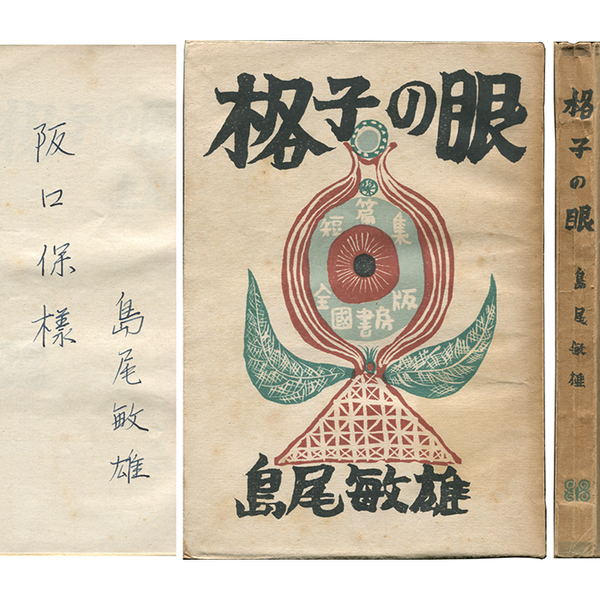 阪口保様
島尾敏雄
格子の眼
短篇集
全國書房版
島尾敏雄
格子の眼
島尾敏雄